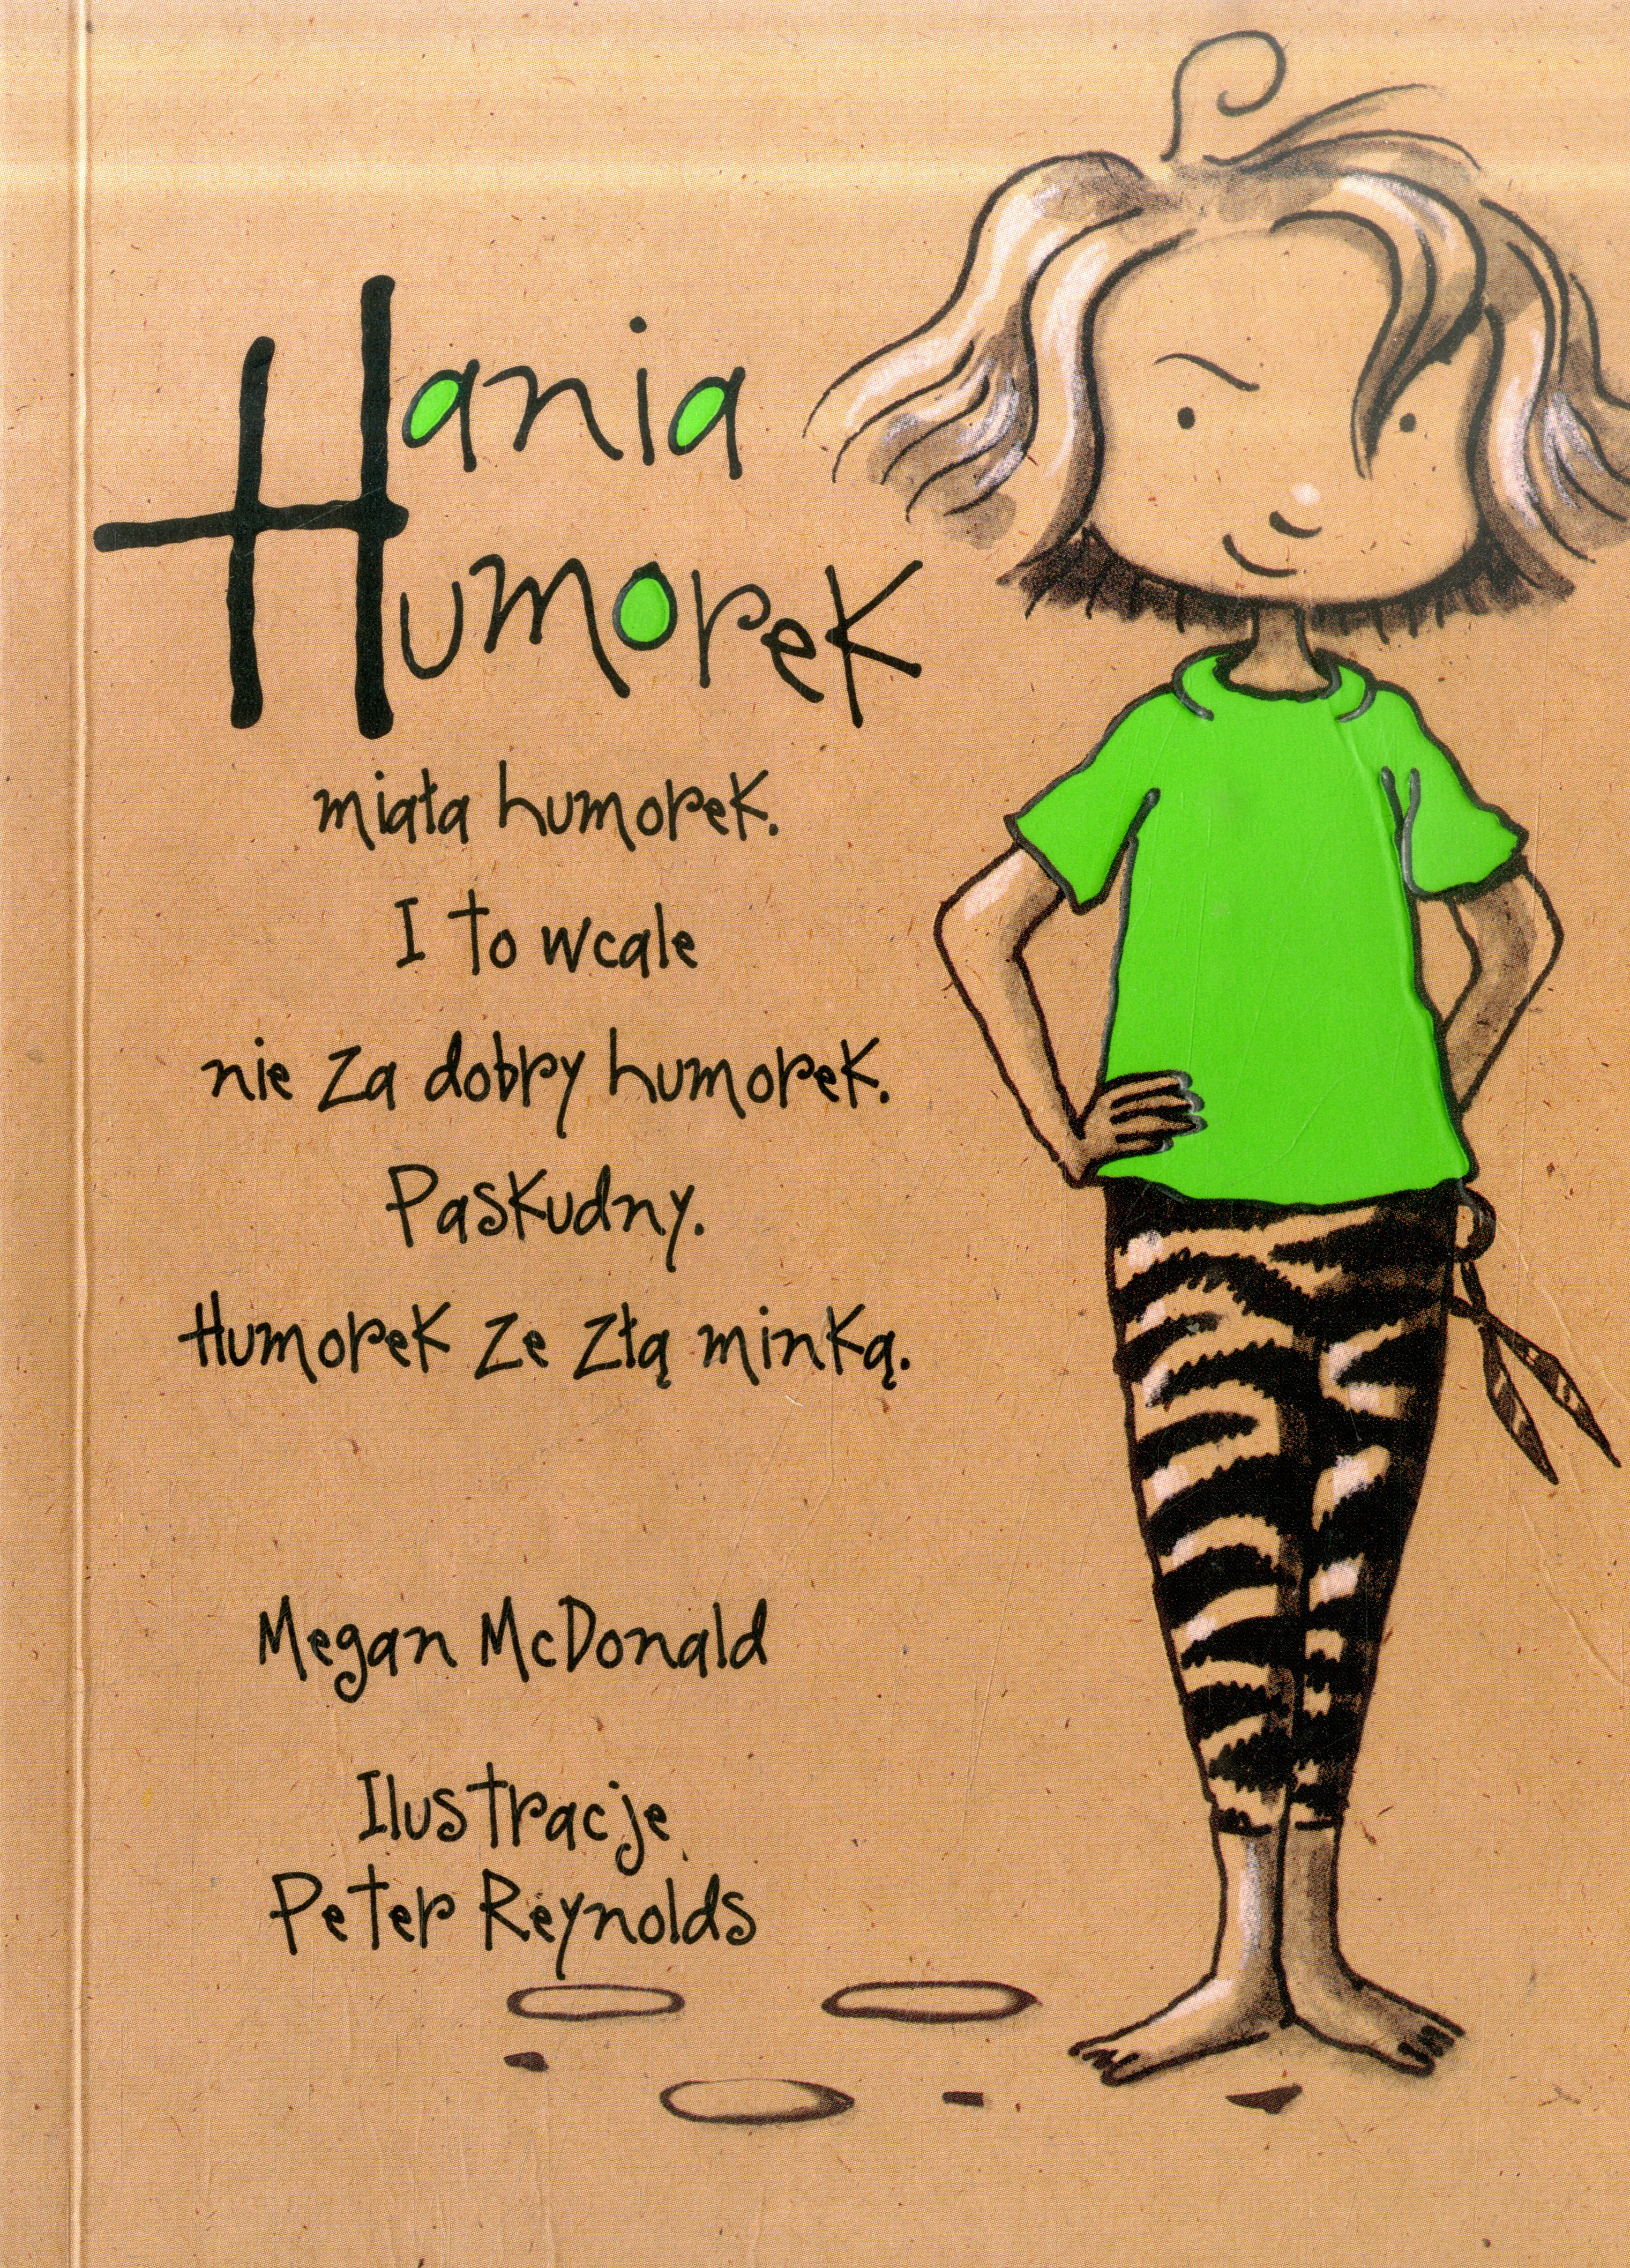 Hania
Humorek
miała humorek.
I to wcale
nie za dobry humorek.
Paskudny.
Humorek ze złą minką.
Megan McDonald
Ilustracje
Peter Reynolds